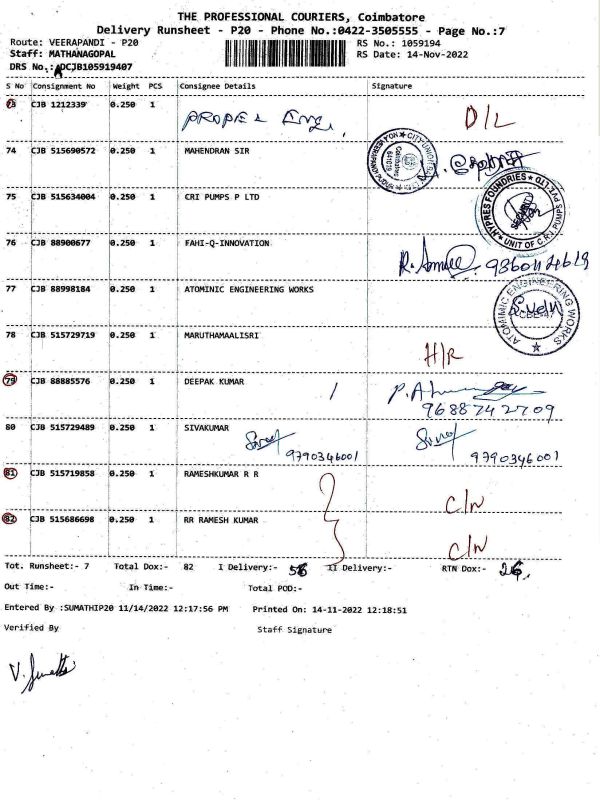 THE PROFESSIONAL COURIERS, Coimbatore
Delivery Runsheet - P20 - Phone No.:0422-3505555 - Page No.:7
Route: VEERAPANDI - P20 RS No.: 1059194
Staff: MATHANAGOPAL RS Date: 14-Nov-2022
DRS No.: ADCJB105919407
S No Consignment No Weight PCS Consignee Details Signature
73 CJB 1212339 0.250 1 PROPEL Eng. D/L
74 CJB 515690572 0.250 1 MAHENDRAN SIR
75 CJB 515634004 0.250 1 CRI PUMPS P LTD
HAYPRES FOUNDRIES PVT LTD UNIT OF C.R.I. PUMPS
76 CJB 88900677 0.250 1 FAHI-Q-INNOVATION
77 CJB 88998184 0.250 1 ATOMINIC ENGINEERING WORKS
ATOMIMIC ENGINEERING WORKS
78 CJB 515729719 0.250 1 MARUTHAMAALISRI H/R
79 CJB 88885576 0.250 1 DEEPAK KUMAR
9688742709
80 CJB 515729489 0.250 1 SIVAKUMAR
9790346001 9790346001
81 CJB 515719858 0.250 1 RAMESHKUMAR R R C/N
82 CJB 515686698 0.250 1 RR RAMESH KUMAR C/N
Tot. Runsheet:- 7 Total Dox:- 82 I Delivery:- 56 II Delivery:- RTN Dox:- 26.
Out Time:- In Time:- Total POD:-
Entered By :SUMATHIP20 11/14/2022 12:17:56 PM Printed On: 14-11-2022 12:18:51
Verified By Staff Signature